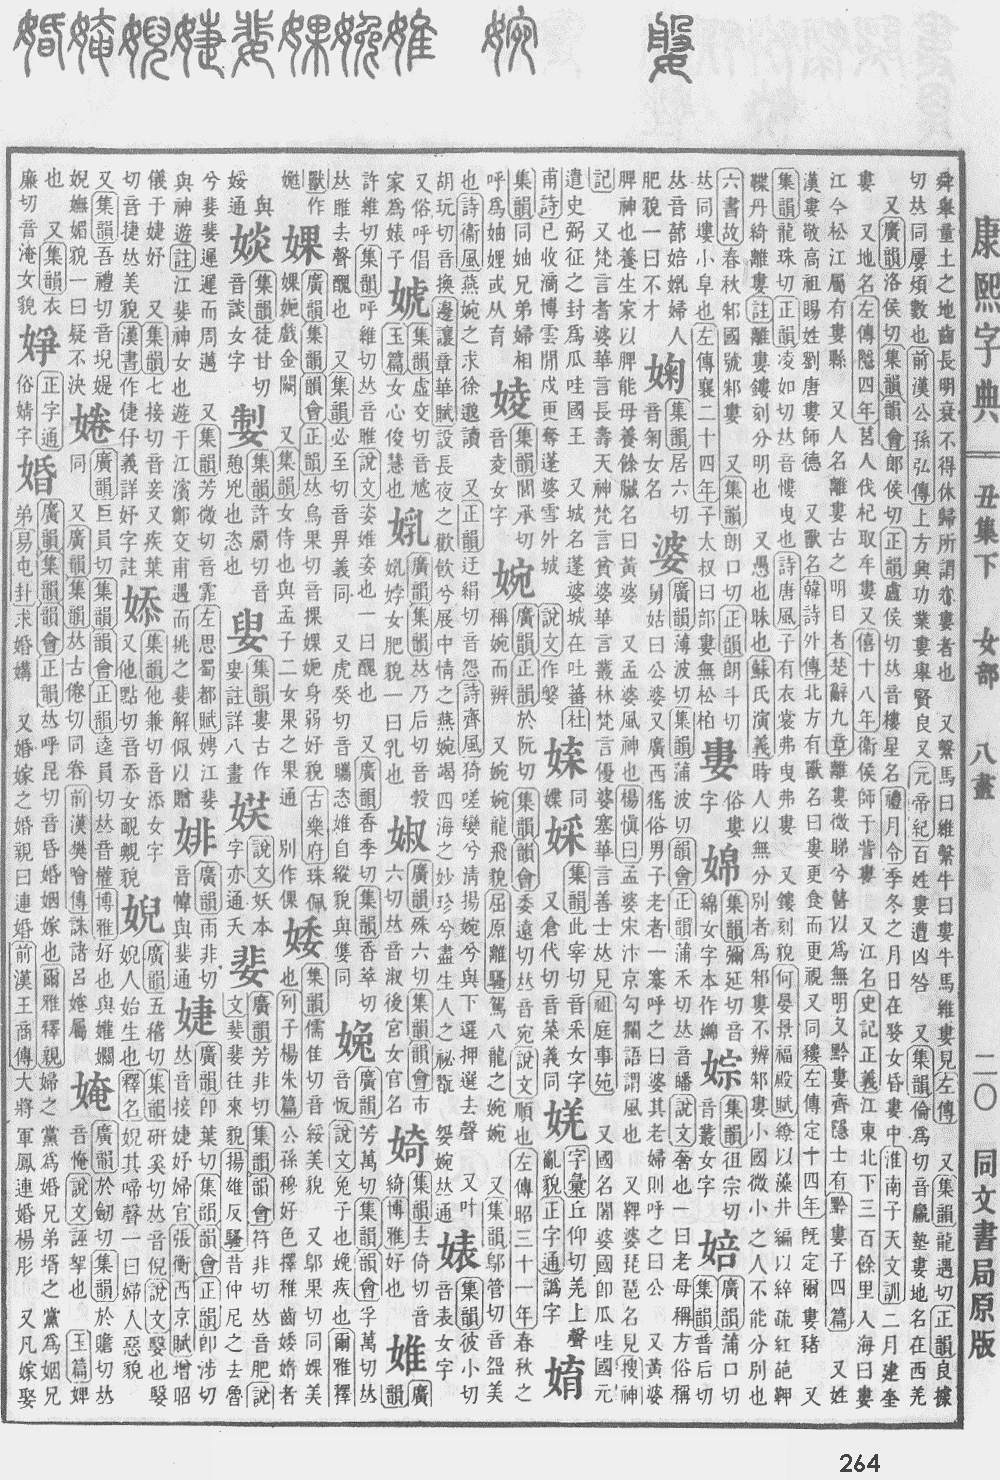 康熙字典 丑集下 女部 八畫 二〇 同文書局原版
舜舉量土之地齒長明衰不得休歸所謂亦婁者也 又繫馬曰維繫牛曰婁牛馬維婁見左傳 又集韻龍遇切正韻良據
切𠀤同屢煩數也前漢公孫弘傳上方興功業婁舉賢良又元帝紀百姓婁遭凶咎 又集韻倫爲切音羸塾婁地名在西羌
又廣韻洛侯切集韻韻會郎侯切正韻盧侯切𠀤音樓星名禮月令季冬之月日在婺女昏婁中淮南子天文訓二月建奎
婁 又地名左傳隱四年莒人伐杞取牟婁又僖十八年衞侯師于訾婁 又江名史記正義江東北下三百餘里入海曰婁
江今松江屬有婁縣 又人名離婁古之明目者楚辭九章離婁微睇兮瞽以爲無明又黔婁齊隱士有黔婁子四篇 又姓
漢婁敬高祖賜姓劉唐婁師德 又獸名韓詩外傳北方有獸名曰婁更食而更視又同䝏左傳定十四年旣定爾婁豬 又
集韻龍珠切正韻凌如切𠀤音慺曳也詩唐風子有衣裳弗曳弗婁 又鏤刻貌何晏景福殿賦繚以藻井編以綷疏紅葩䩞
䩞丹綺離婁註離婁鏤刻分明也 又愚也昧也蘇氏演義時人以無分別者爲邾婁不辨邾婁小國微小之人不能分別也
六書故春秋邾國號邾婁 又集韻朗口切正韻朗斗切
𠀤同塿小阜也左傳襄二十四年子太叔曰部婁無松柏
婁 俗婁字
婂 集韻彌延切音綿女字本作㛯
婃 集韻徂宗切音叢女字
婄 廣韻蒲口切集韻普后切
𠀤音蔀婄娝婦人肥貌一曰不才
婅 集韻居六切音匊女名
婆 廣韻薄波切集韻蒲波切韻會正韻蒲禾切𠀤音皤說文奢也一曰老母稱方俗稱
舅姑曰公婆又廣西猺俗男子老者一寨呼之曰婆其老婦則呼之曰公 又黃婆
脾神也養生家以脾能母養餘臟名曰黃婆 又孟婆風神也楊愼曰孟婆宋汴京勾欄語謂風也 又鞞婆琵琶名見搜神
記 又梵言耆婆華言長壽天神梵言貧婆華言叢林梵言優婆塞華言善士𠀤見祖庭事苑 又國名闍婆國卽瓜哇國元
遣史弼征之封爲瓜哇國王 又城名蓬婆城在吐蕃杜
甫詩已收滴博雲閒戍更奪蓬婆雪外城
婇 同婇
婇 集韻此宰切音采女字 又倉代切音菜義同
㛿 字彙丘仰切羌上聲亂貌正字通譌字
婧
集韻同妯兄弟婦相呼爲妯娌或从育
婈 集韻閭承切音夌女字
婉 說文作㜑廣韻正韻於阮切集韻韻會委遠切𠀤音宛說文順也左傳昭三十一年春秋之
稱婉而辨 又婉婉龍飛貌屈原離騷駕八龍之婉婉 又集韻鄔管切音盌美
也詩衞風燕婉之求徐邈讀 又正韻迂絹切音怨詩齊風猗嗟孌兮淸揚婉兮與下選押選去聲 又叶
胡玩切音換邊讓章華賦設長夜之歡飮兮展中情之燕婉竭四海之妙珍兮盡生人之祕翫 㛲婉𠀤通
婊 集韻彼小切音表女字
又俗呼倡家爲婊子
婋 玉篇集韻虛交切音虓女心俊慧也
㛅 廣韻集韻𠀤乃后切音㝅㛅㛁女肥貌一曰乳也
婌 廣韻殊六切集韻韻會市六切𠀤音淑後宮女官名
婍 集韻去倚切音綺博雅好也
婎 廣韻
許維切集韻呼維切𠀤音睢說文姿婎姿也一曰醜也 又廣韻香季切集韻香萃切
𠀤睢去聲醜也 又集韻必至切音畀義同 又虎癸切音𥌒恣婎自縱貌與㒞同
婏 廣韻芳萬切集韻韻會孚萬切𠀤
音㤆說文兔子也婏疾也爾雅釋獸作娩
婐 廣韻集韻韻會正韻𠀤烏果切音捰婐婗身弱好貌古樂府珠佩婐婗戲金闕 又集韻女侍也與孟子二女果之果通 別作倮
婑 集韻儒隹切音綏美貌 又鄔果切同婐美也列子楊朱篇公孫穆好色擇稚齒婑媠者
與娞通
婒 集韻徒甘切音談女字
㛿 集韻許罽切音憩兇也恣也
㛮 集韻婁古作𡜱註詳八畫
㛱 說文妖本字亦通夭
婓 廣韻芳非切集韻韻會符非切𠀤音肥說文婓婓往來貌揚雄反騷昔仲尼之去魯
兮婓婓遲遲而周邁 又集韻芳微切音霏左思蜀都賦娉江婓
與神遊註江婓神女也遊于江濱鄭交甫遇而挑之婓解佩以贈
婔 廣韻雨非切音幃與婓通
婕 廣韻卽葉切集韻韻會正韻卽涉切𠀤音接婕妤婦官張衡西京賦增昭
儀于婕妤 又集韻七接切音妾又疾葉切音捷𠀤美貌漢書作倢伃義詳妤字註
婖 集韻他兼切音添女字 又他點切音忝女䩄䚇貌
婗 廣韻五稽切集韻硏奚切𠀤音倪說文嫛也嫛婗人始生也釋名婗其啼聲一曰婦人惡貌
又集韻吾禮切音堄媞婗嫵媚貌一曰疑不決也
婘 廣韻巨員切集韻韻會正韻逵員切𠀤音權博雅好也與孉嫺同 又廣韻集韻𠀤古倦切同眷前漢樊噲傳誅諸呂婘屬
又集韻衣廉切音淹女貌
婙 正字通俗婧字
婚 廣韻集韻韻會正韻𠀤呼昆切音昏婚姻嫁也爾雅釋親婦之黨爲婚兄弟壻之黨爲姻兄
弟易屯卦求婚媾 又婚嫁之婚親曰連婚前漢王商傳大將軍鳳連婚楊肜 又凡嫁娶
婩
婨 廣韻於劒切集韻於贍切𠀤音俺說文誣挐也 玉篇婢
264